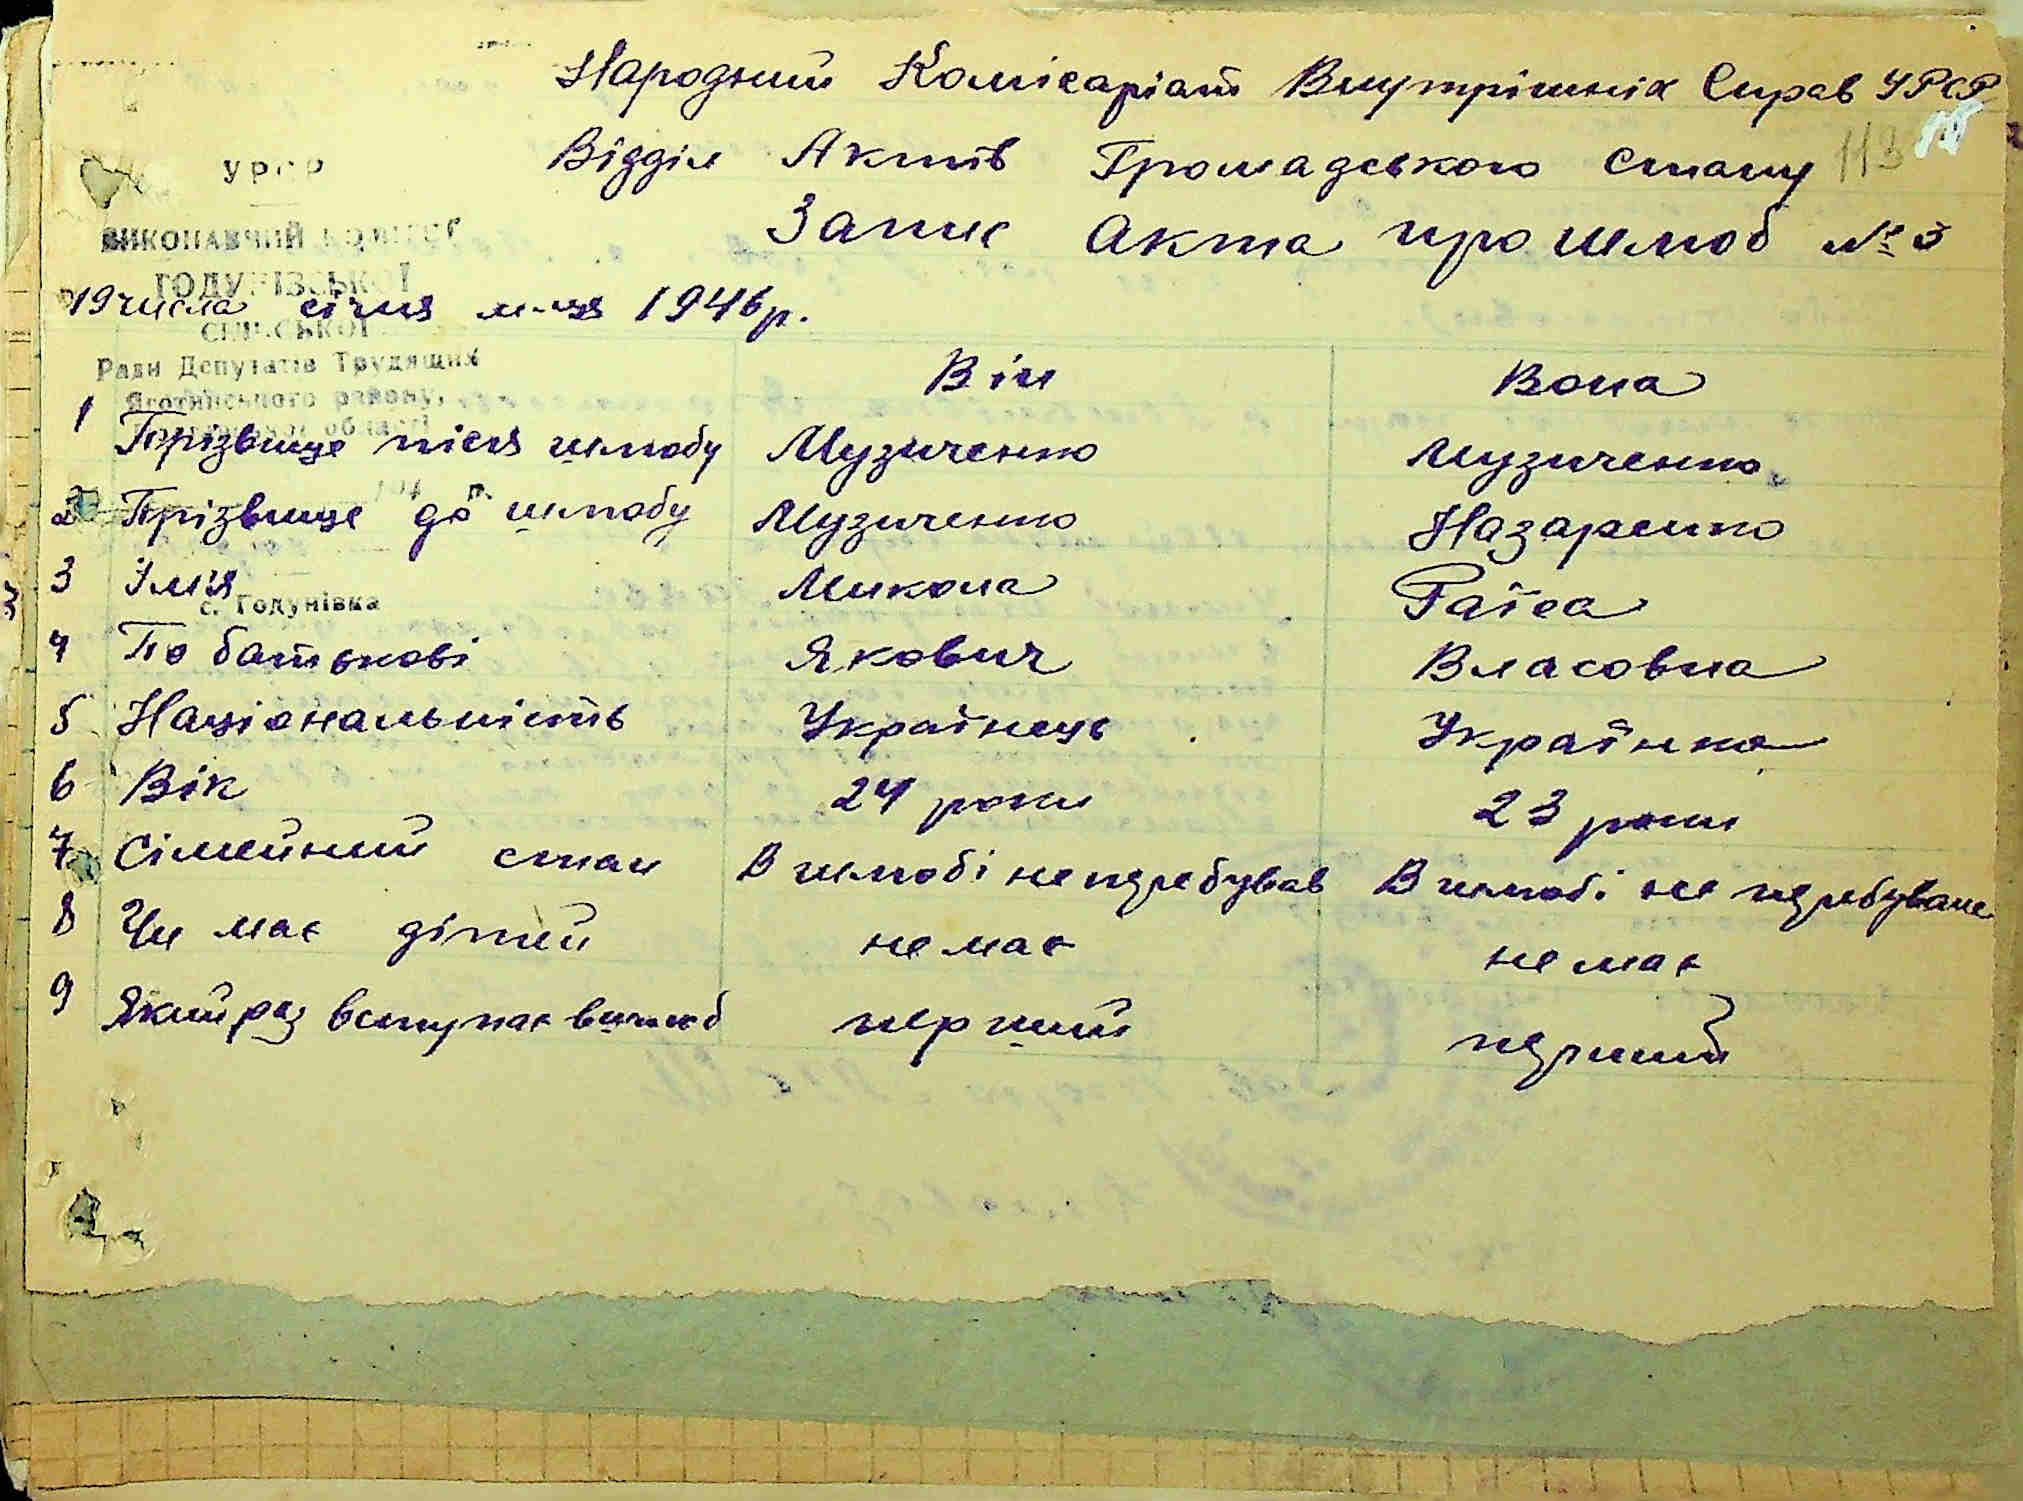 Народний Комісаріат Внутрішніх Справ УРСР
Відділ Актів Громадського стану 113
Запис Акта про шлюб № 3
УРСР
ВИКОНАВЧИЙ КОМІТЕТ
ГОДУНІВСЬКОЇ
СІЛЬСЬКОЇ
Ради Депутатів Трудящих
Яготинського району,
області
с. Годунівка
19 числа січня м-ця 1946 р.
Він Вона
1 Прізвище після шлюбу Музиченко Музиченко
2 Прізвище до шлюбу Музиченко Назаренко
3 Імʼя Микола Раїса
4 По батькові Якович Власовна
5 Національність Українець Українка
6 Вік 24 роки 23 роки
7 Сімейний стан В шлюбі не перебував В шлюбі не перебувала
8 Чи має дітей не має не має
9 Який раз вступає в шлюб перший перший